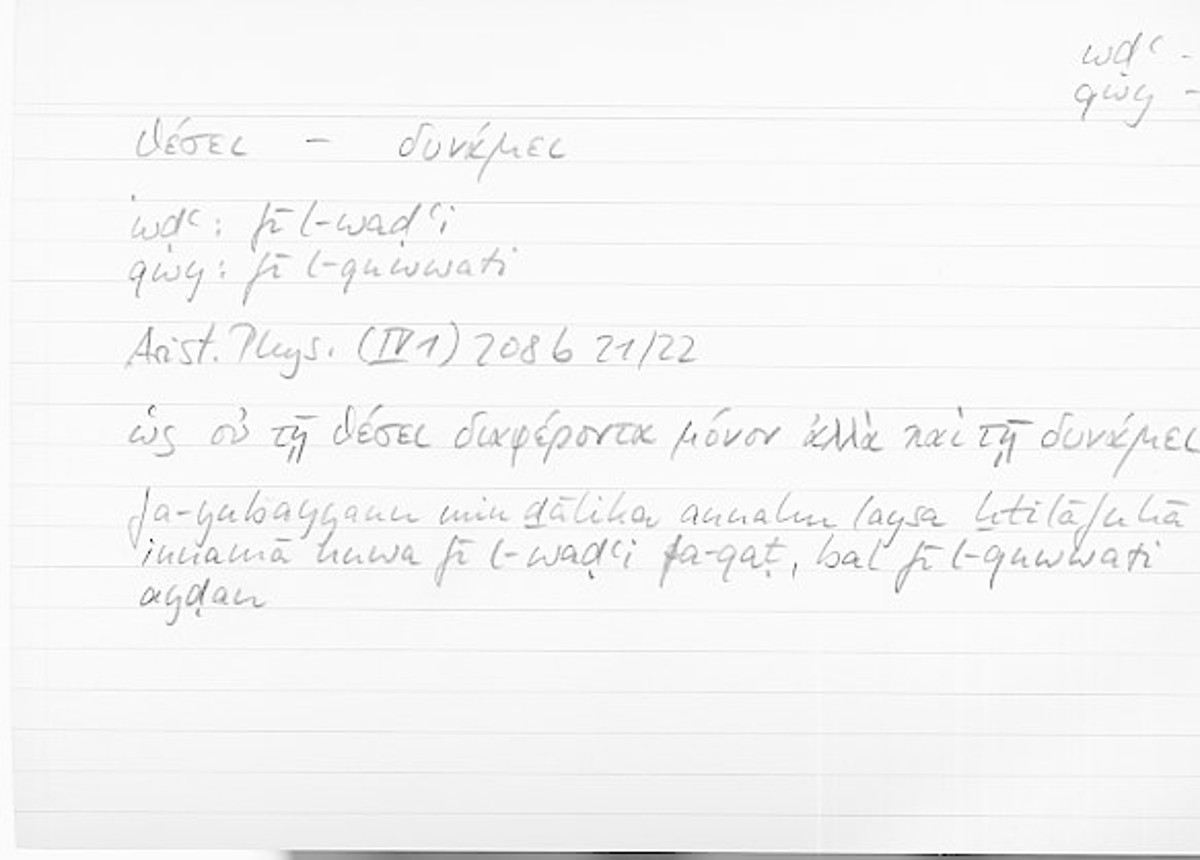 wḍʿ -
qwy -
θέσει - δυνάμει
wḍʿ: fī l-waḍʿi
qwy: fī l-quwwati
Arist. Phys. (IV 1) 208 b 21/22
ὡς οὐ τῇ θέσει διαφέροντα μόνον ἀλλὰ καὶ τῇ δυνάμει
fa-yubayyanu min ḏālika annahu laysa ḫtilāfuhā
innamā huwa fī l-waḍʿi fa-qaṭ, bal fī l-quwwati
ayḍan